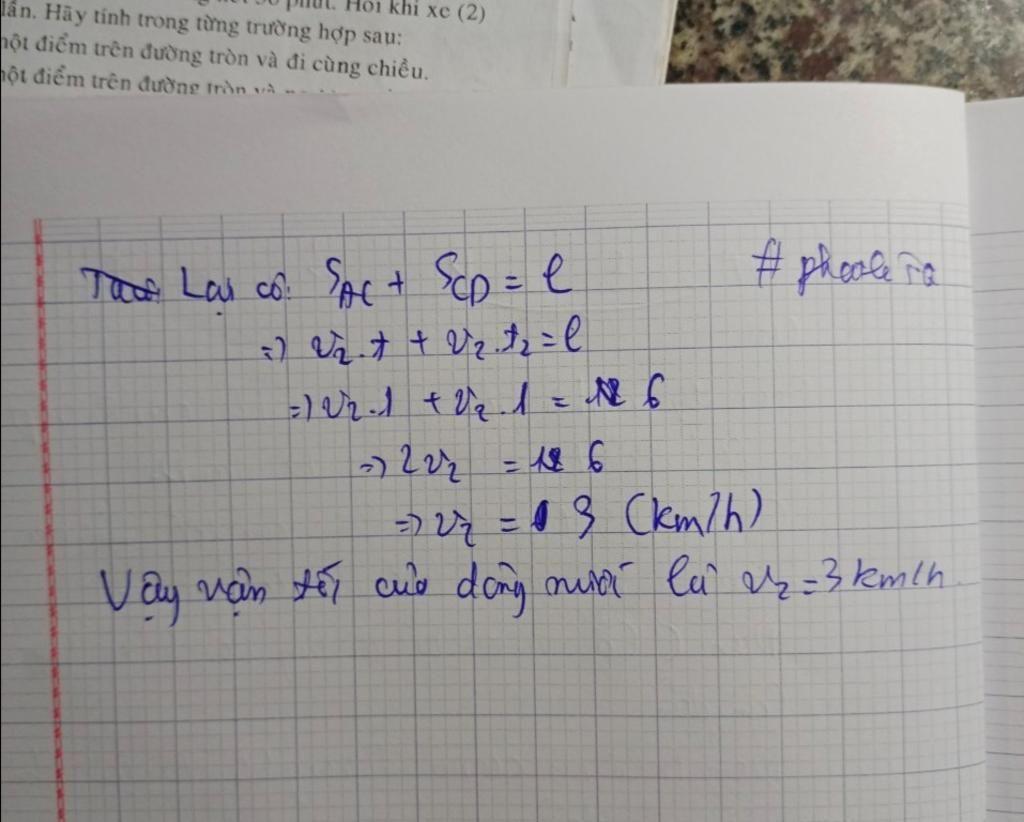 phút. Hỏi khi xe (2)
lần. Hãy tính trong từng trường hợp sau:
một điểm trên đường tròn và đi cùng chiều.
một điểm trên đường tròn và
Lại có: S_AC + S_CD = l
=> v₂.t + v₂.t₂ = l
=> v₂.1 + v₂.1 = 6
=> 2v₂ = 6
=> v₂ = 3 (km/h)
Vậy vận tốc của dòng nước là v₂ = 3 km/h